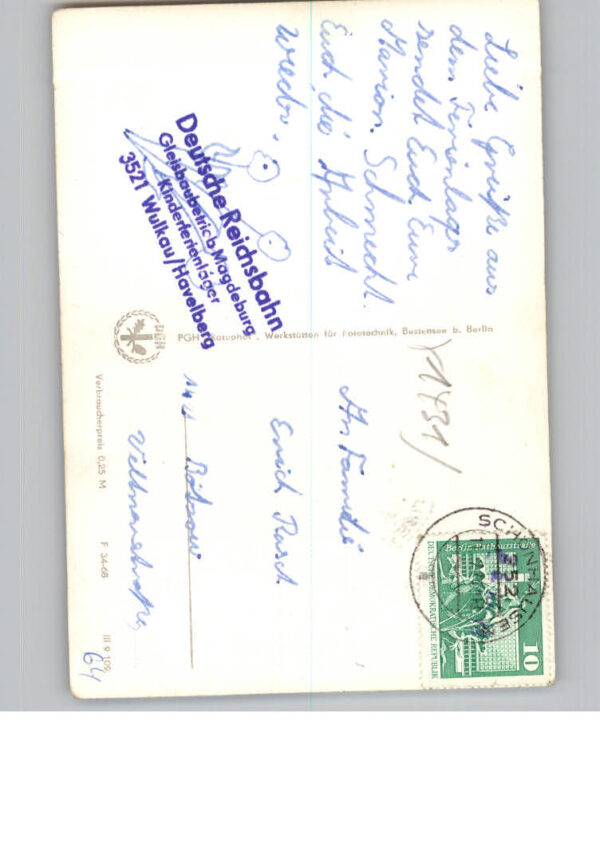 Liebe Grüße aus
dem Ferienlager
sendet Euch Eure
Marion. Schmeckt
Euch die Arbeit
wieder.
Deutsche Reichsbahn
Gleisbaubetrieb Magdeburg
Kinderferienlager
3521 Wulkau/Havelberg
PGH Fotophot, Werkstätten für Fototechnik, Bestensee b. Berlin
PGH
Verbraucherpreis 0,25 M
F 34-68
III 9 109
64
1431/
An Familie
Erich Rasch
144
SCHÖNHAUSEN
352
Berlin Rathausstraße
DEUTSCHE DEMOKRATISCHE REPUBLIK
10